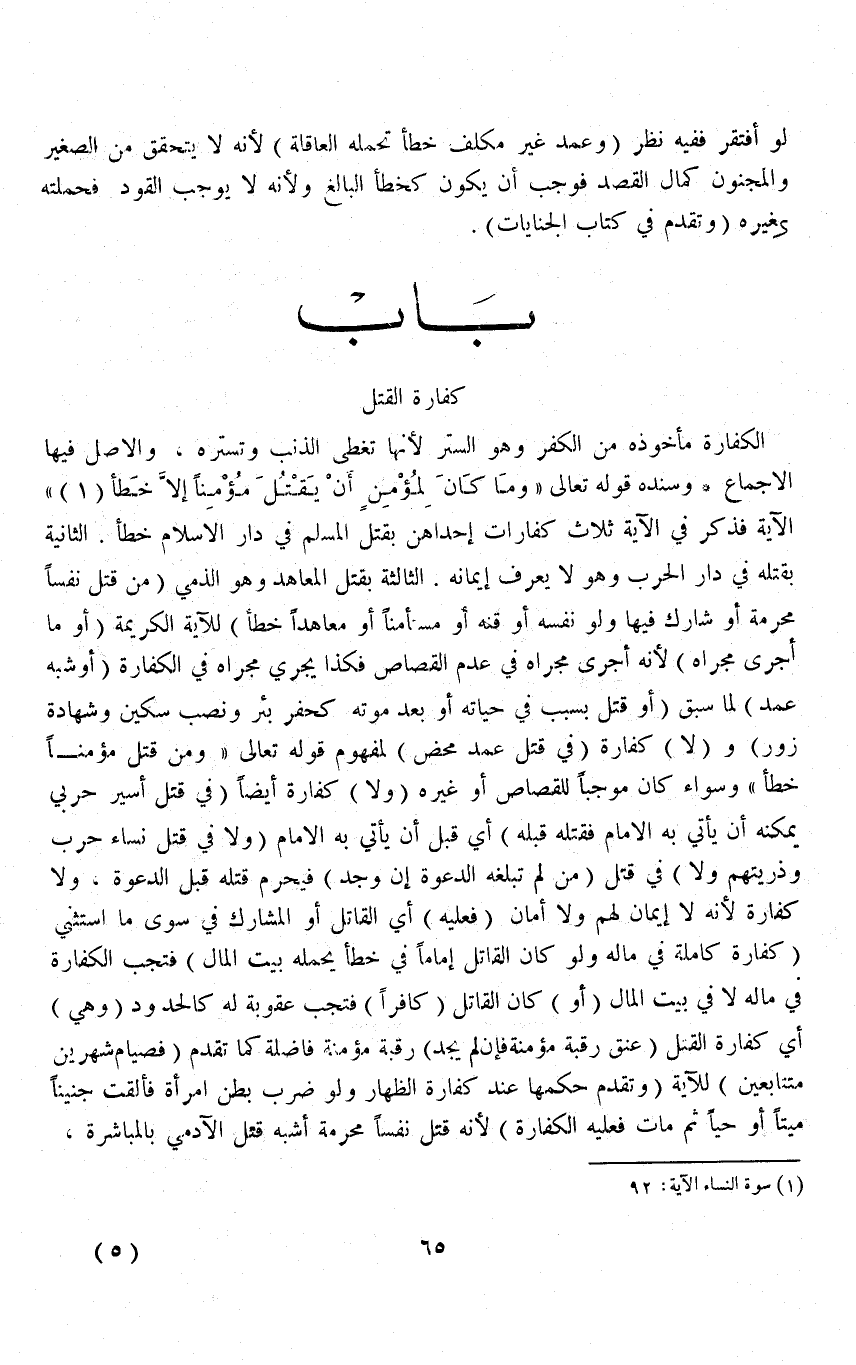 لو أفتقر ففيه نظر ( وعمد غير مكلف خطأ تحمله العاقلة ) لأنه لا يتحقق من الصغير
والمجنون كمال القصد فوجب أن يكون كخطأ البالغ ولأنه لا يوجب القود فحملته
كغيره ( وتقدم في كتاب الجنايات ) .
بَابْ
كفارة القتل
الكفارة مأخوذه من الكفر وهو الستر لأنها تغطى الذنب وتستره ، والاصل فيها
الاجماع * وسنده قوله تعالى « ومَا كَانَ لِمُؤْمِنٍ أَنْ يَقْتُلَ مُؤْمِناً إلاَّ خَطأ ( ١ ) »
الآية فذكر في الآية ثلاث كفارات إحداهن بقتل المسلم في دار الاسلام خطأ . الثانية
بقتله في دار الحرب وهو لا يعرف إيمانه . الثالثة بقتل المعاهد وهو الذمي ( من قتل نفساً
محرمة أو شارك فيها ولو نفسه أو قنه أو مستأمناً أو معاهداً خطأ ) للآية الكريمة ( أو ما
أجرى مجراه ) لأنه أجرى مجراه في عدم القصاص فكذا يجري مجراه في الكفارة ( أوشبه
عمد ) لما سبق ( أو قتل بسبب في حياته أو بعد موته كحفر بئر ونصب سكين وشهادة
زور ) و ( لا ) كفارة ( في قتل عمد محض ) لمفهوم قوله تعالى « ومن قتل مؤمنـــاً
خطأ » وسواء كان موجباً للقصاص أو غيره ( ولا ) كفارة أيضاً ( في قتل أسير حربي
يمكنه أن يأتي به الامام فقتله قبله ) أي قبل أن يأتي به الامام ( ولا في قتل نساء حرب
وذريتهم ولا ) في قتل ( من لم تبلغه الدعوة إن وجد ) فيحرم قتله قبل الدعوة ، ولا
كفارة لأنه لا إيمان لهم ولا أمان ( فعليه ) أي القاتل أو المشارك في سوى ما استثني
( كفارة كاملة في ماله ولو كان القاتل إماماً في خطأ يحمله بيت المال ) فتجب الكفارة
في ماله لا في بيت المال ( أو ) كان القاتل ( كافراً ) فتجب عقوبة له كالحدود ( وهي )
أي كفارة القتل ( عتق رقبة مؤمنةفإن لم يجد) رقبة مؤمنة فاضلة كما تقدم ( فصيام شهرين
متتابعين ) للآية ( وتقدم حكمها عند كفارة الظهار ولو ضرب بطن امرأة فألقت جنيناً
ميتاً أو حياً ثم مات فعليه الكفارة ) لأنه قتل نفساً محرمة أشبه قتل الآدمي بالمباشرة ،
(١) سوة النساء الآية: ٩٢
٦٥
( ٥ )